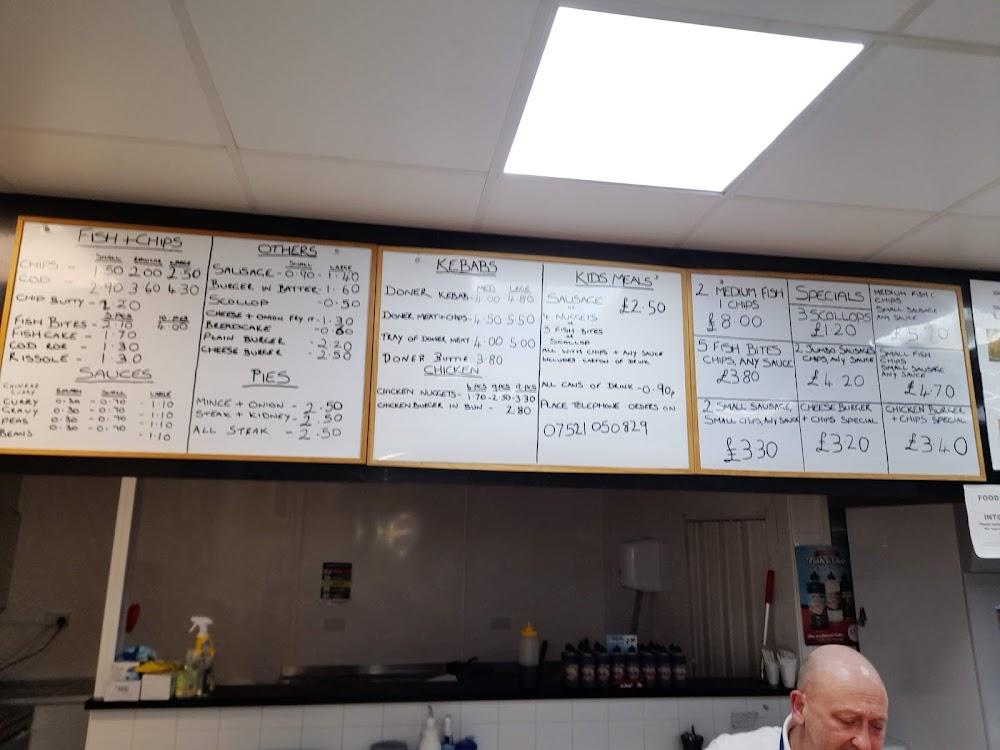 FISH + CHIPS
SMALL REGULAR LARGE
CHIPS - 1.50 2.00 2.50
COD - 2.90 3.60 4.30
CHIP BUTTY - 1.20
5 PCS 10 PCS
FISH BITES - 2.10 4.00
FISHCAKE - 1.70
COD ROE - 1.30
RISSOLE - 1.30
SAUCES
CHINESE
CURRY
SMALL LARGE
CURRY - 0.30 - 0.70 - 1.10
GRAVY - 0.30 - 0.70 - 1.10
PEAS - 0.30 - 0.70 - 1.10
BEANS - 1.10
OTHERS
SMALL LARGE
SAUSAGE - 0.40 - 1.40
BURGER IN BATTER - 1.60
SCOLLOP - 0.50
CHEESE + ONION FRY IT - 1.30
BREADCAKE - 0.60
PLAIN BURGER - 2.20
CHEESE BURGER - 2.50
PIES
MINCE + ONION - 2.50
STEAK + KIDNEY - 2.50
ALL STEAK - 2.50
KEBABS
MED LRGE
DONER KEBAB - 4.00 4.80
DONER MEAT + CHIPS - 4.50 5.50
TRAY OF DONER MEAT 4.00 5.00
DONER BUTTIE 3.80
CHICKEN
6 PCS 9 PCS 12 PCS
CHICKEN NUGGETS - 1.70 - 2.50 - 3.30
CHICKEN BURGER IN BUN - 2.80
KIDS MEALS
SAUSAGE £2.50
OR
4 NUGGETS
OR
3 FISH BITES
OR
SCOLLOP
ALL WITH CHIPS + ANY SAUCE
INCLUDES CARTON OF DRINK
ALL CANS OF DRINK - 0.90p
PLACE TELEPHONE ORDERS ON
07521 050829
2 MEDIUM FISH
1 CHIPS
£8.00
SPECIALS
3 SCOLLOPS
£1.20
MEDIUM FISH
CHIPS
SMALL SAUSAGE
ANY SAUCE
5 FISH BITES
CHIPS, ANY SAUCE
£3.80
2 JUMBO SAUSAGES
CHIPS, ANY SAUCE
£4.20
SMALL FISH
CHIPS
SMALL SAUSAGE
ANY SAUCE
£4.70
2 SMALL SAUSAGE,
SMALL CHIPS, ANY SAUCE
£3.30
CHEESE BURGER
+ CHIPS SPECIAL
£3.20
CHICKEN BURGER
+ CHIPS SPECIAL
£3.40
FOOD
INTO